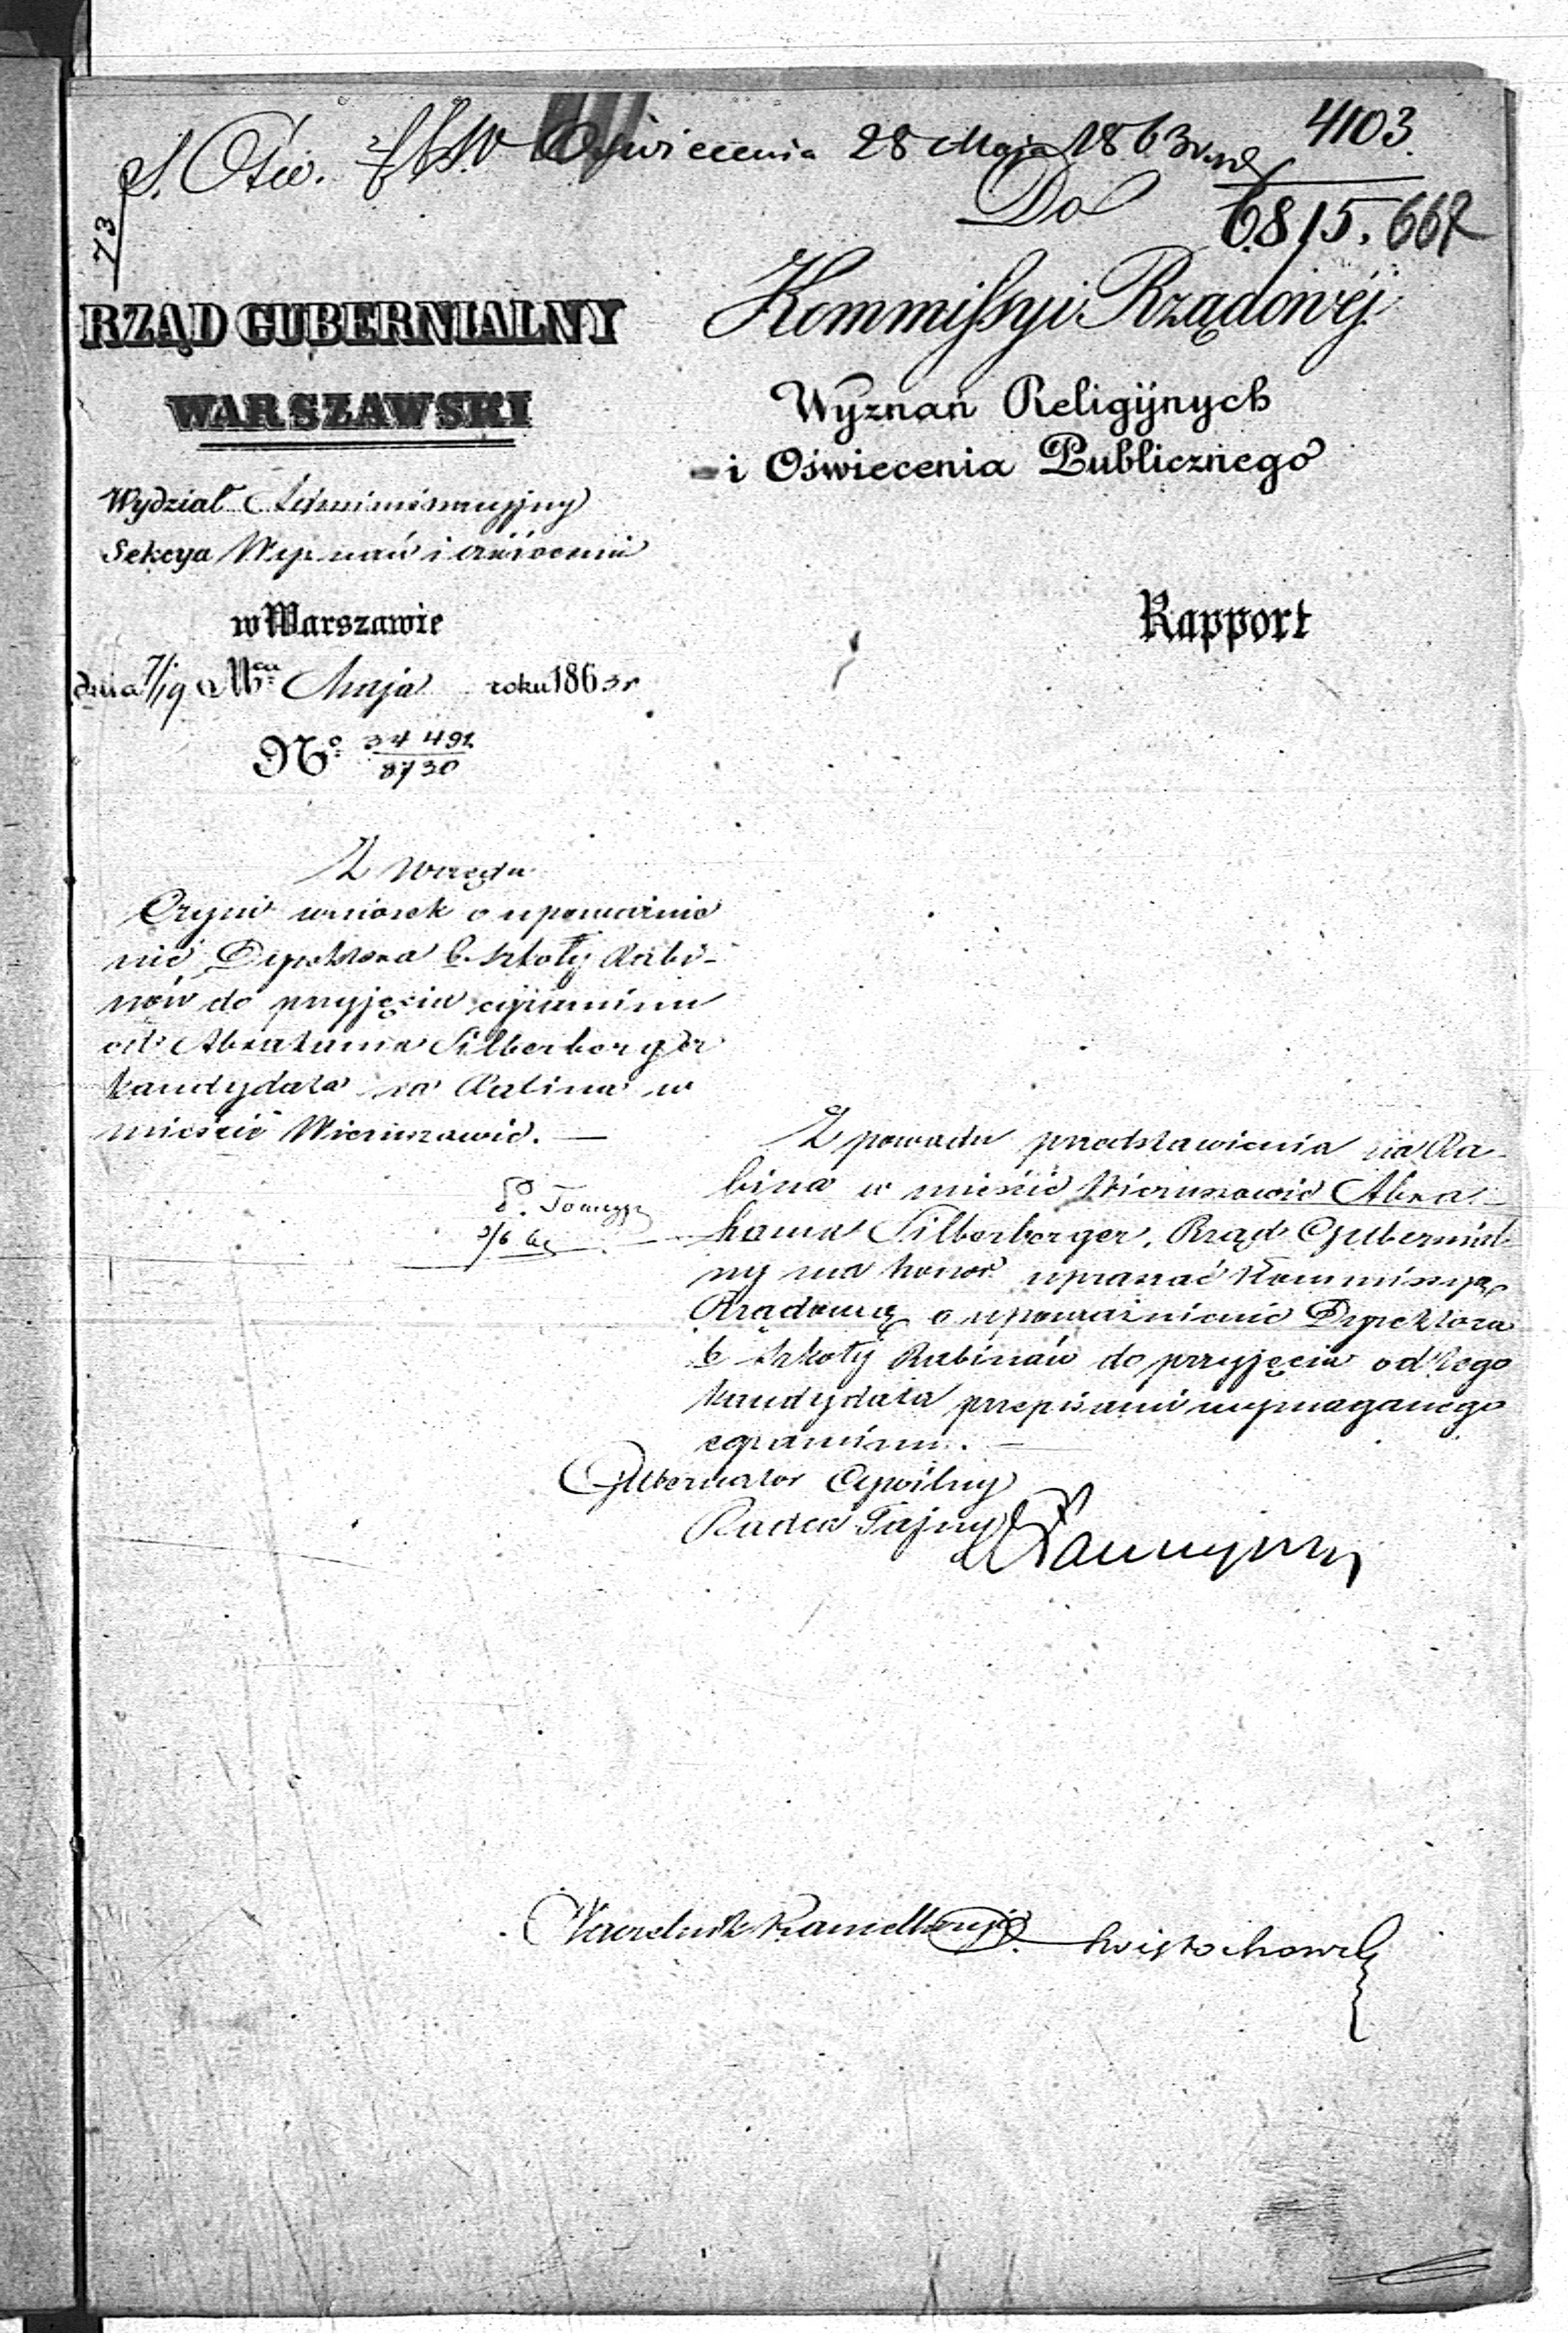 S. Ośw. Oświecenia 28 Maja 1863 4103.
73
Do 6815. 667
RZĄD GUBERNIALNY
WARSZAWSKI
Wydział Administracyjny
Sekcya Wyznań i oświecenia
w Warszawie
dnia 7/19 Maja roku 1863 r
No. 34 491
8730
Kommissyi Rządowéj
Wyznań Religijnych
i Oświecenia Publicznego
Rapport
Z Urzędu
Czyni wniosek o upoważnie
nie Dyrektora b. szkoły Rabi-
nów do przyjęcia egzaminu
od Abrahama Silberberger
kandydata na Rabina w
mieście Wieruszowie. —
Z powodu przedstawienia na Ra-
bina w mieście Wieruszowie Abra-
hama Silberberger, Rząd Gubernial-
ny ma honor upraszać Kommissyą
Rządową o upoważnienie Dyrektora
b. szkoły Rabinów do przyjęcia od tego
kandydata przepisami wymaganego
egzaminu. —
Gubernator Cywilny
Radca Tajny
Naczelnik Kancellaryi